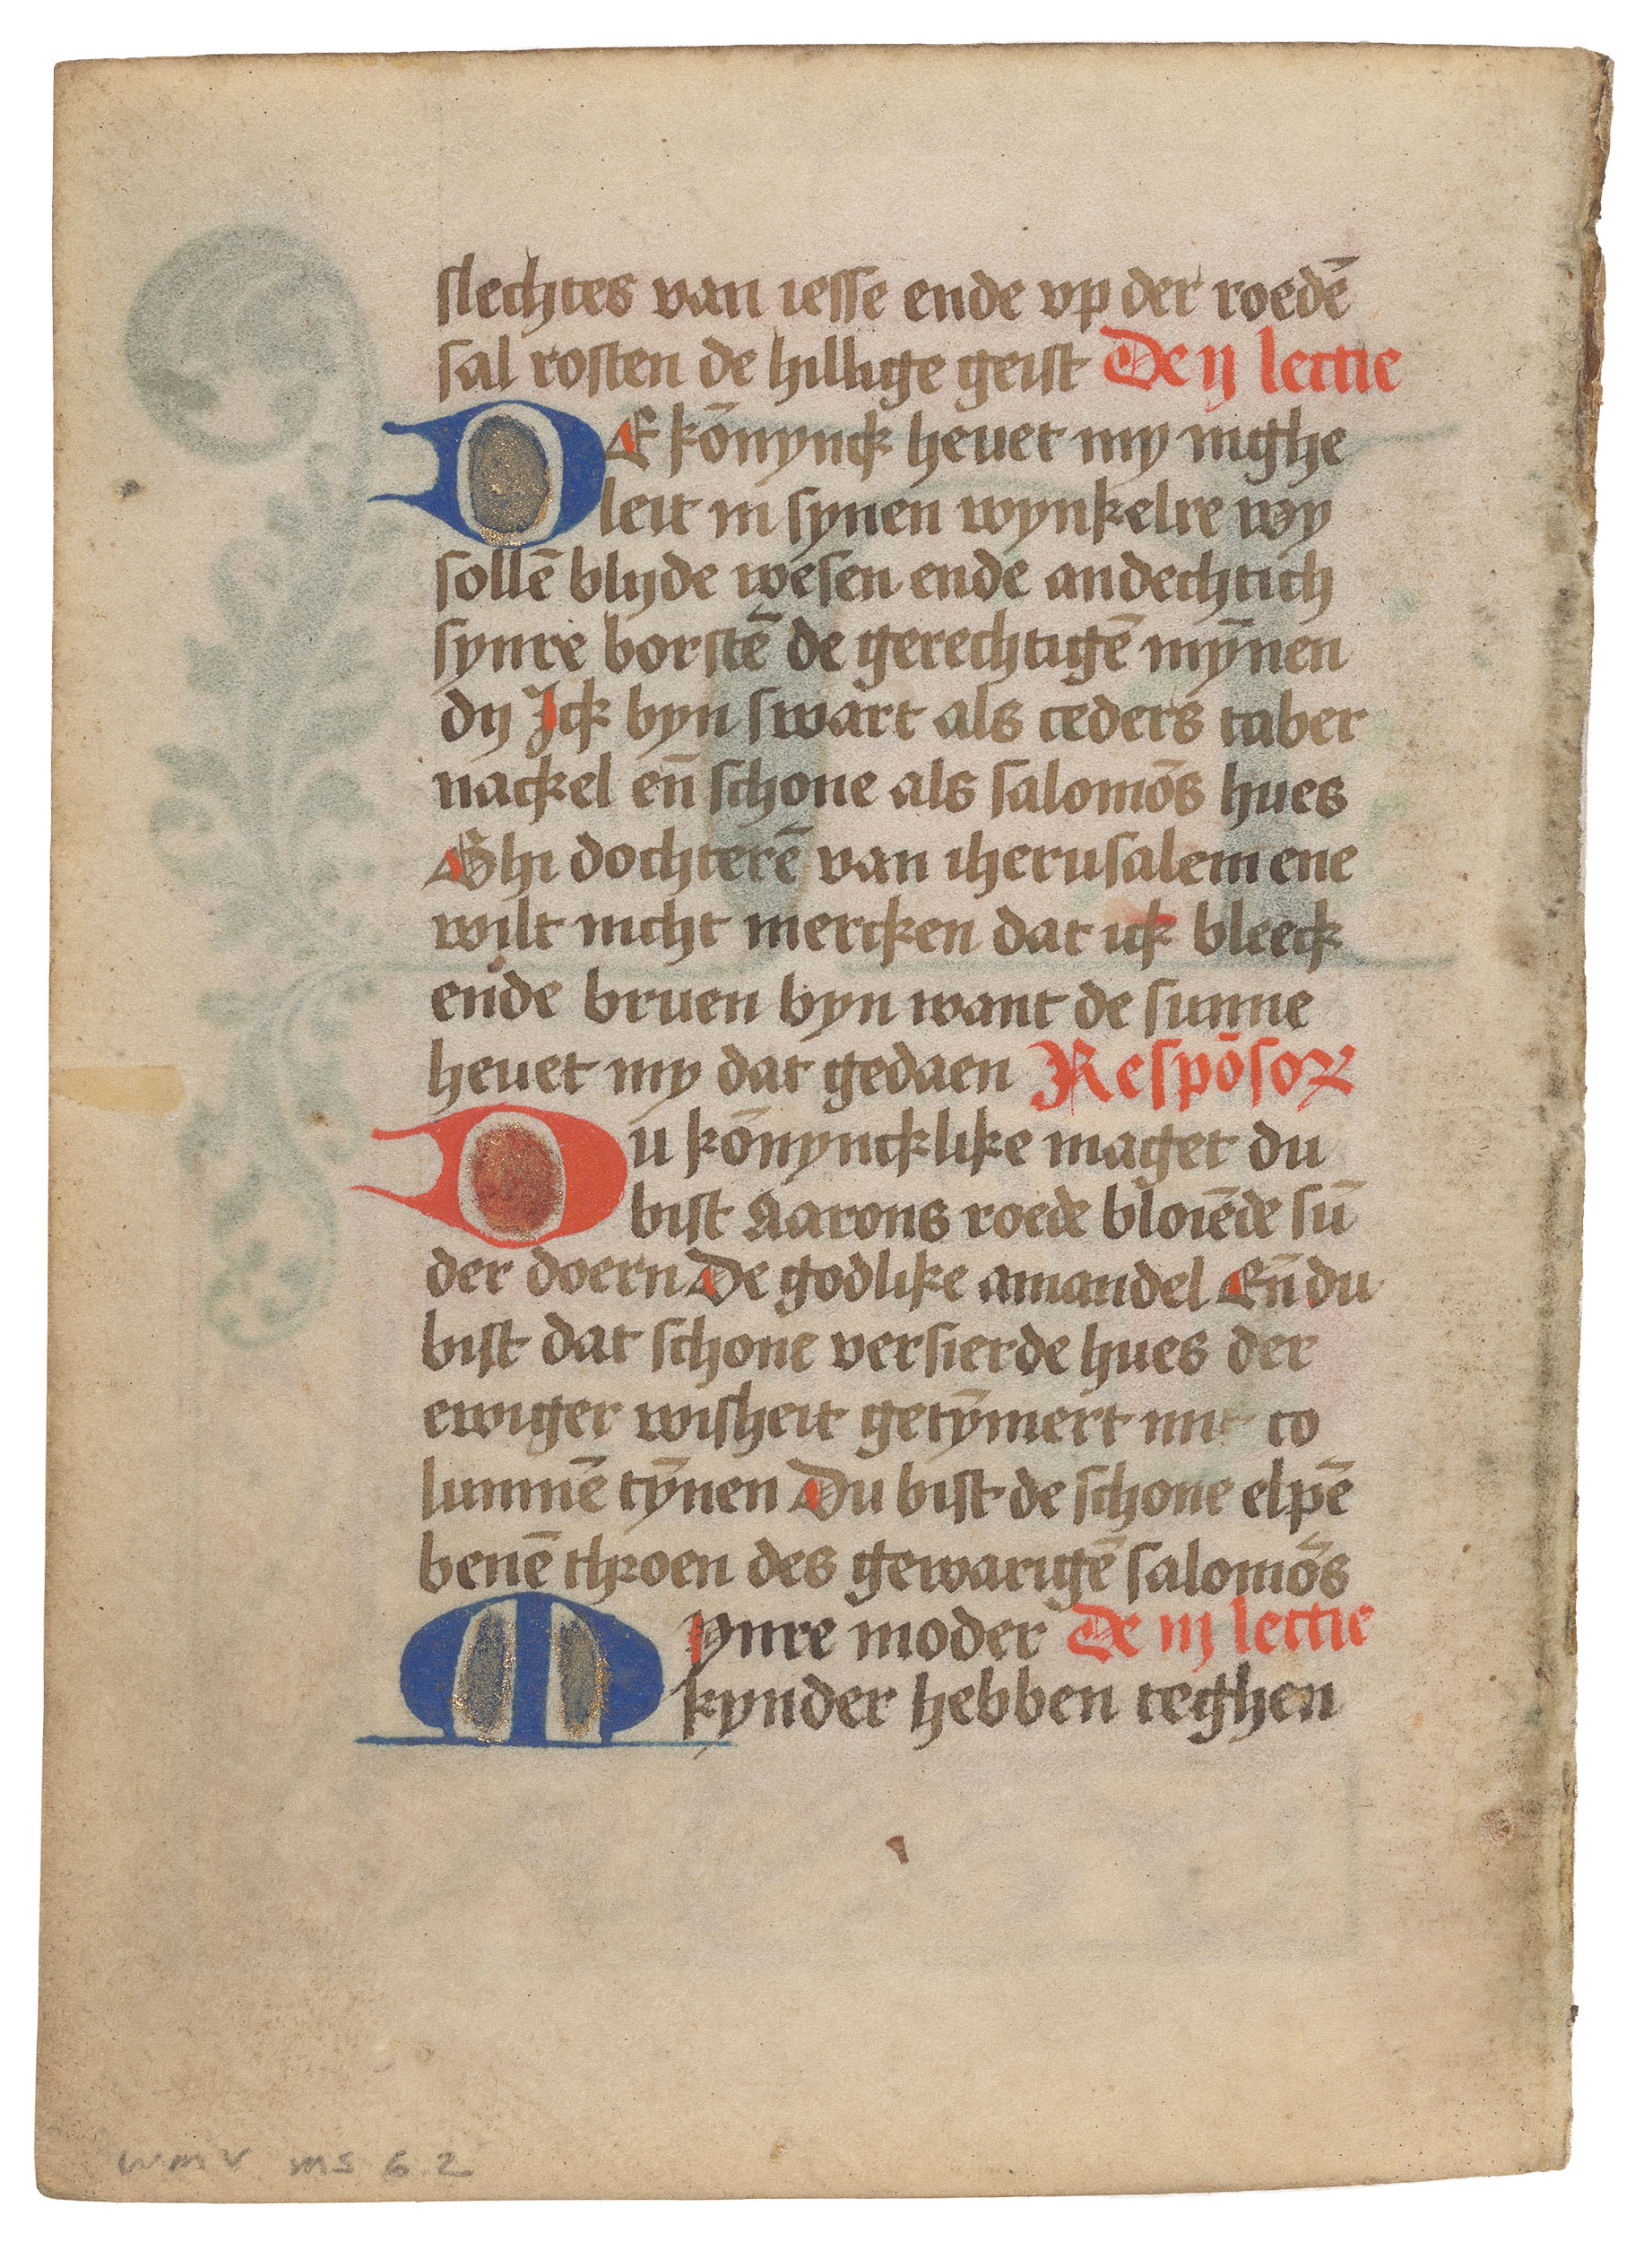 slechtes van iesse ende vp der roedē
sal rosten de hillige geist De ij lectie
DE kōnynck heuet my nighe
leit in synen wynkelre wy
sollē blijde wesen ende andechtich
synre borstē de gerechtigē mȳnen
dij Ick byn swart als ceders taber
nackel eñ schone als salomōs hues
Ghi dochterē van iherusalem ene
wilt nicht mercken dat ick bleeck
ende bruen byn want de sunne
heuet my dat gedaen Respōsor
Du kōnyncklike maget du
bist Aarons roede bloiēde sū
der doern De godlike amandel Eñ du
bist dat schone versierde hues der
ewiger wisheit getȳmert mit co
lumnē tȳnen Du bist de schone elpē
benē throen des gewarigē salomōs
Mynre moder De iij lectie
kynder hebben teghen
wmv ms 6.2